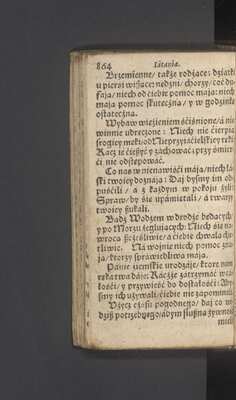 864 Litania.
Brzemienne/ także rodzące: dziatki
u piersi wiszące: nędzni/ chorzy/ coć du-
fają/ niech od ciebie pomoc mają: niech
mają pomoc skuteczną/ y w godzinę
ostateczną.
Wybaw więzieniem ściśnione/ á nie
winnie udręczone: Niech nie cierpią
srogiey męki/ od Nieprzyjacielskiey ręki
Racz ie cieszyć y záchować: przy śmier-
ći nie odstępować.
Co nas w nienawiści mają/ niech łá-
ski twoiey doznają: Day byśmy im od-
puścili/ á z káżdym w pokoju żyli:
Spraw/ by się upámiętali/ á twarzy
twoiey szukali.
Bądź Wodzem w drodze będących:
y po Morzu żegluiących: Niech się na-
wrocą szczęśliwie/ á ciebie chwalą chę-
tliwie. Ná woynie niech pomoc zna-
ią/ ktorzy spráwiedliwą mają.
Pánie ućieszki urodzaje/ ktore nam
ręka twa dáje: Rácz że zátrzymáć w ca-
łości/ y przywieść do dostałości: Aby-
śmy ich używáli/ ciebie nie zápomináli
Użycz czásu pogodnego/ daj co w-
dziß potrzebnego: ábym słußną żywność
mieli